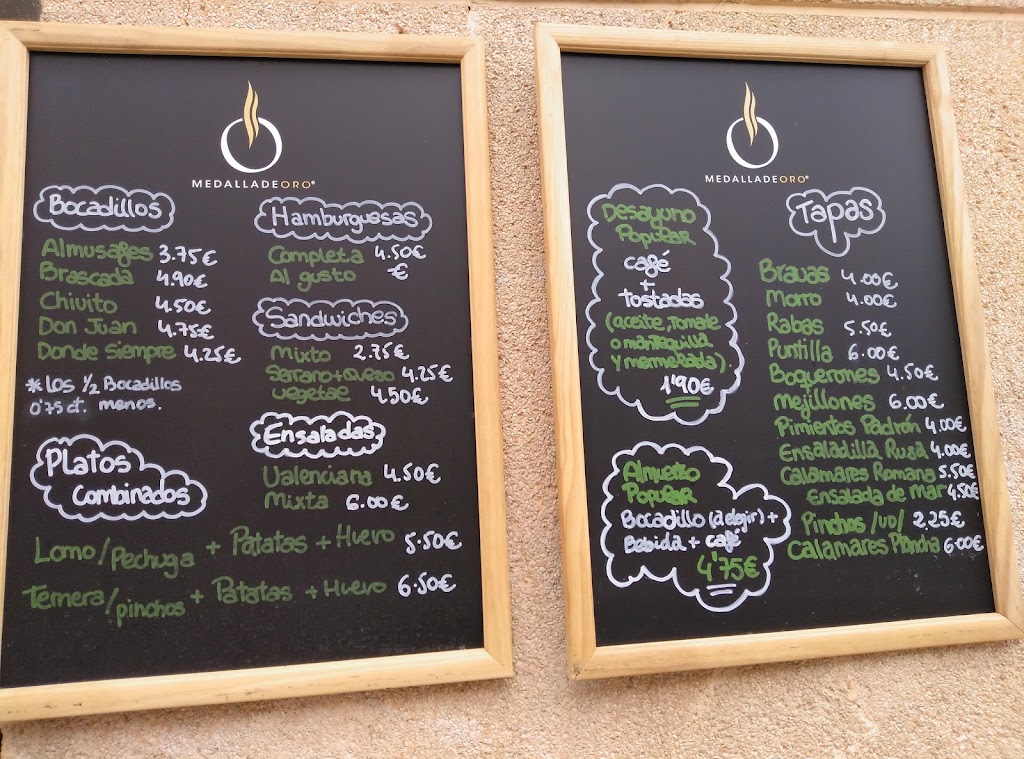 MEDALLADEORO®
Bocadillos
Almusafes 3.75€
Brascada 4.90€
Chivito 4.50€
Don Juan 4.75€
Donde siempre 4.25€
*Los 1/2 Bocadillos
0'75 ct. menos.
Hamburguesas
Completa 4.50€
Al gusto -€
Sandwiches
Mixto 2.75€
Serrano+Queso 4.25€
Vegetal 4.50€
Ensaladas
Valenciana 4.50€
Mixta 6.00€
Platos
Combinados
Lomo/Pechuga + Patatas + Huevo 5.50€
Ternera/pinchos + Patatas + Huevo 6.50€
MEDALLADEORO®
Desayuno
Popular
café
+
tostadas
(aceite, tomate
o mantequilla
y mermelada)
1'90€
Almuerzo
Popular
Bocadillo (a elegir) +
Bebida + café
4'75€
Tapas
Bravas 4.00€
Morro 4.00€
Rabas 5.50€
Puntilla 6.00€
Boquerones 4.50€
Mejillones 6.00€
Pimientos Padrón 4.00€
Ensaladilla Rusa 4.00€
Calamares Romana 5.50€
Ensalada de Mar 4.50€
Pinchos /UD/ 2,25€
Calamares Plancha 6.00€